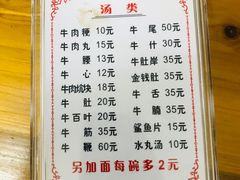 汤类
牛肉粳 10元
牛肉丸 15元
牛腰 13元
牛心 12元
牛肉炖块 18元
牛肚 20元
牛百叶 20元
牛筋 35元
牛鞭 60元
牛尾 50元
牛什 30元
牛肚岸 35元
金钱肚 35元
牛舌 35元
牛腩 35元
鲨鱼片 15元
水丸汤 10元
另加面每碗多2元